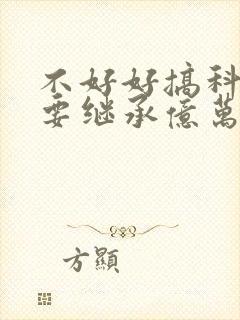 不好好搞科
要继承億萬
方顯